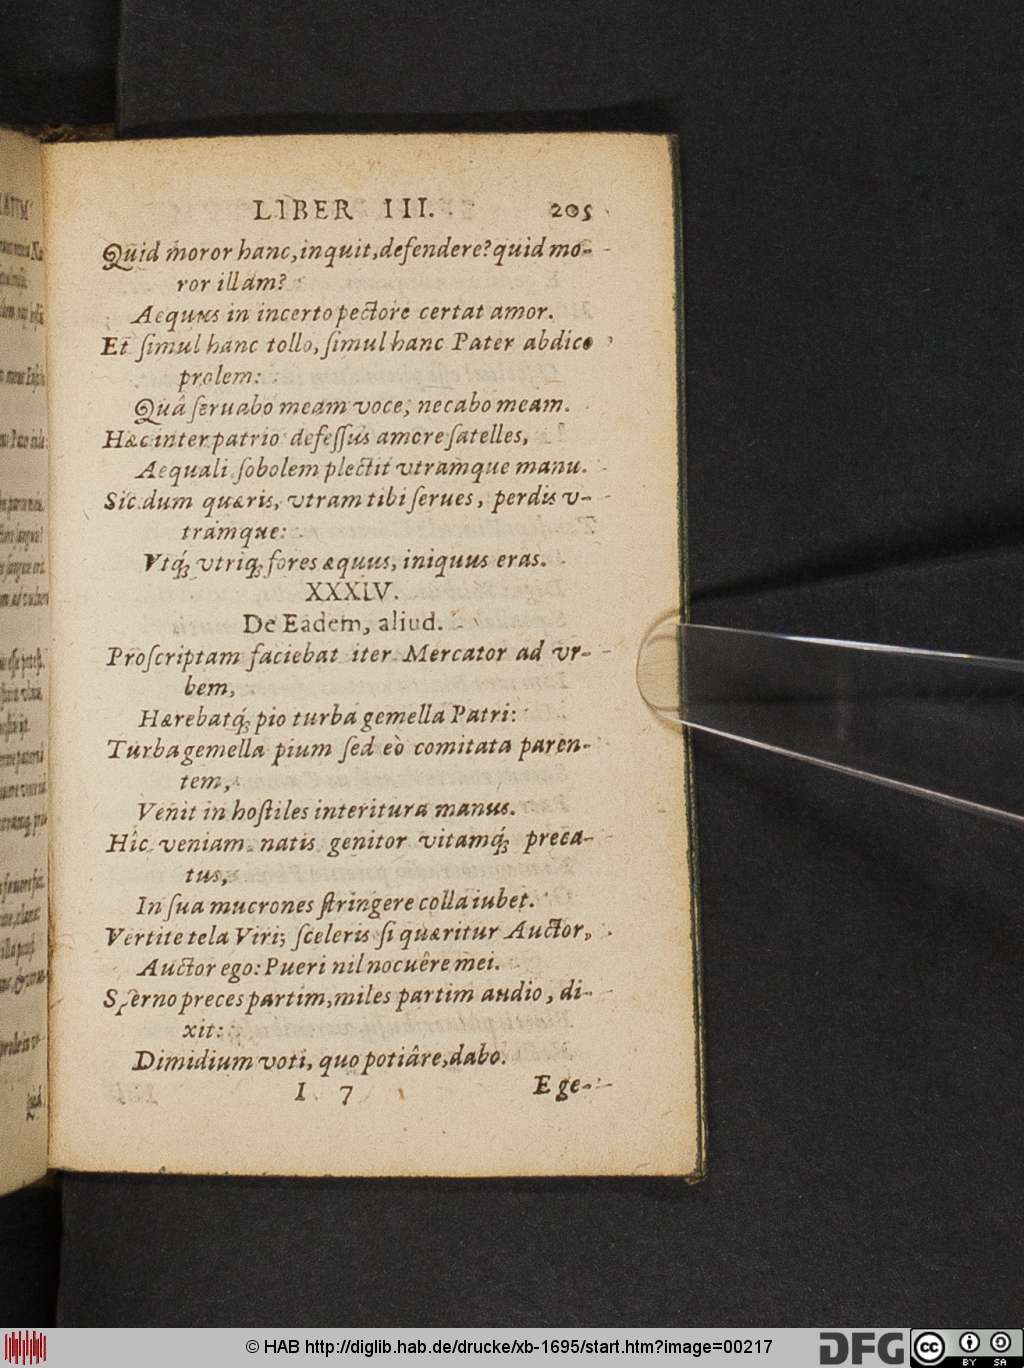 LIBER III. 205
Quid moror hanc, inquit, defendere? quid mo-
ror illam?
Aequus in incerto pectore certat amor.
Et ſimul hanc tollo, ſimul hanc Pater abdico
prolem:
Quâ ſeruabo meam voce, necabo meam.
Hæc inter patrio defeſſus amore ſatelles,
Aequali ſobolem plectit vtramque manu.
Sic dum quæris, vtram tibi ſerues, perdis v-
tramque:
Vtq́; vtriq; fores æquus, iniquus eras.
XXXIV.
De Eadem, aliud.
Proſcriptam faciebat iter Mercator ad vr-
bem,
Hærebatq́; pio turba gemella Patri:
Turba gemella pium ſed eò comitata paren-
tem,
Venit in hoſtiles interitura manus.
Hîc veniam natis genitor vitamq́; preca-
tus,
In ſua mucrones ſtringere colla iubet.
Vertite tela Viri; ſceleris ſi quæritur Auctor,
Auctor ego: Pueri nil nocuêre mei.
Sperno preces partim, miles partim audio, di-
xit:
Dimidium voti, quo potiâre, dabo.
I 7 Ege-
© HAB http://diglib.hab.de/drucke/xb-1695/start.htm?image=00217
DFG
cc BY SA